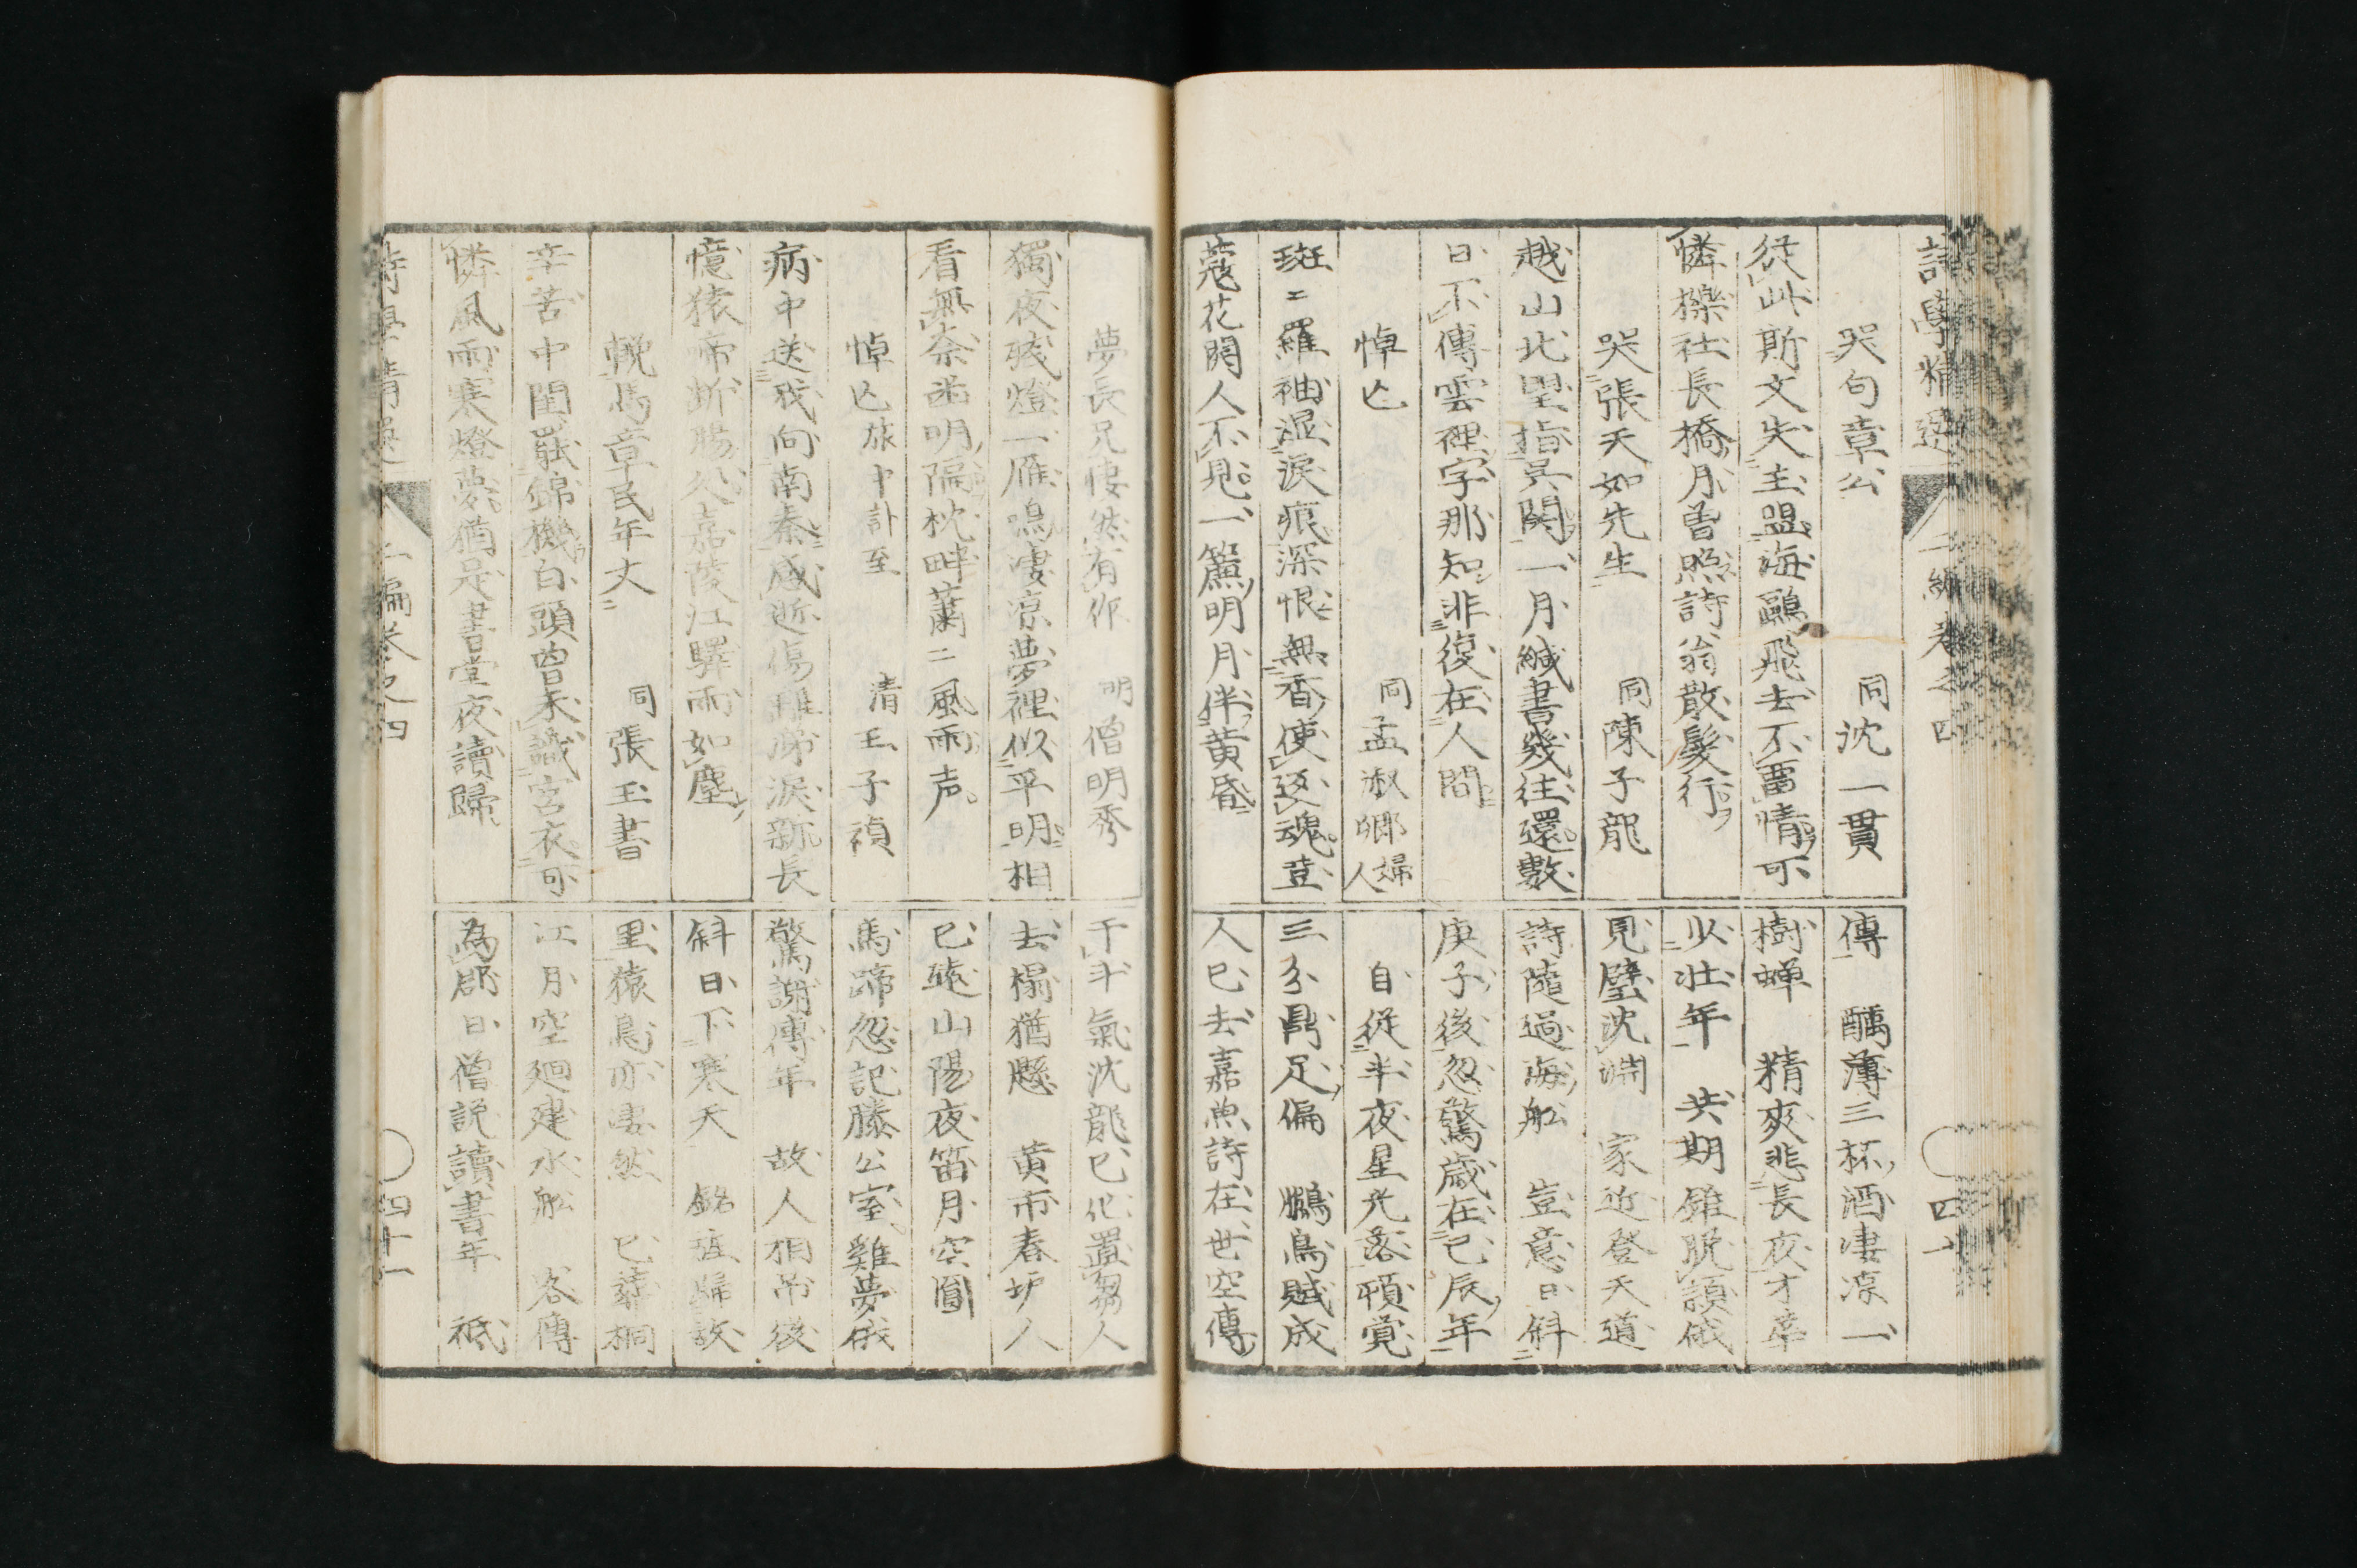 詩學精選 二編卷之四 四十
哭句章公 同沈一貫
從此斯文失主盟海鷗飛去不畱情可
憐檪社長橋月曽照詩翁散髮行
哭張天如先生 同陳子龍
越山北望指吳関一月緘書幾徃還數
日不傳雲裡字那知非復在人間
悼亡 同孟淑卿婦人
斑〻羅袖湿淚痕深恨無香使返魂荳
蔻花開人不見一簾明月伴黄昏
傳 醨薄三杯酒凄凉一
樹蝉 精爽悲長夜才華
少壮年 共期錐脫頴俄
見璧沈淵 家近登天道
詩隨過海舩 豈意日斜
庚子後忽驚歳在巳辰年
自從半夜星光落頓覚
三分鼎足偏 鵩鳥賦成
人已去嘉魚詩在世空傳
夢長兄悽然有作 明僧明秀
獨夜残燈一雁鳴凄凉夢裡似平明相
看無奈幽明隔枕畔蕭〻風雨声
悼亡旅中訃至 清王子禎
病中送我向南秦感逝傷離涕淚新長
憶猿啼断腸久嘉陵江驛雨如塵
輓馬章民年丈 同張玉書
辛苦中閨罷錦機白頭曽未識宮衣可
憐風雨寒燈夢猶是書堂夜讀歸
干斗氣沈龍已化置芻人
去榻猶懸 黄市春垆人
已遠山陽夜笛月空圓
馬蹄忽記滕公室雞夢俄
驚謝傅年 故人相吊後
斜日下寒天 銘旌歸故
里猿鳥亦凄然 已葬桐
江月空廻建水舩 客傳
為郡日僧説讀書年 祇
詩學精選 二編卷之四 四十一